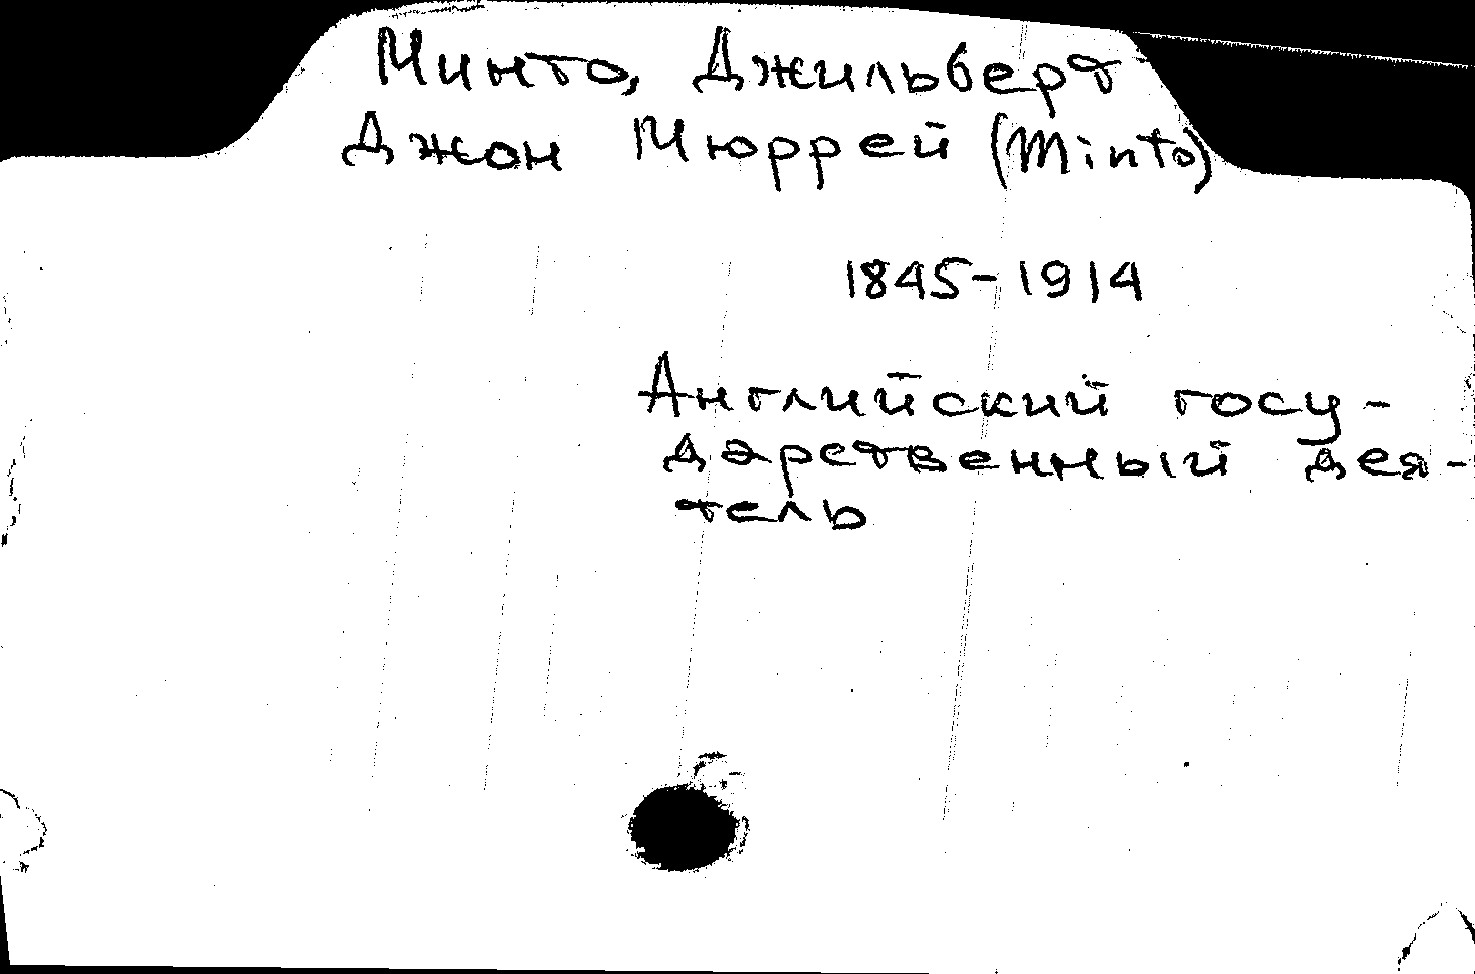 Минто, Джильберт
Джон Мюррей (Minto)
1845-1914
Английский госу-
дарственный дея-
тель